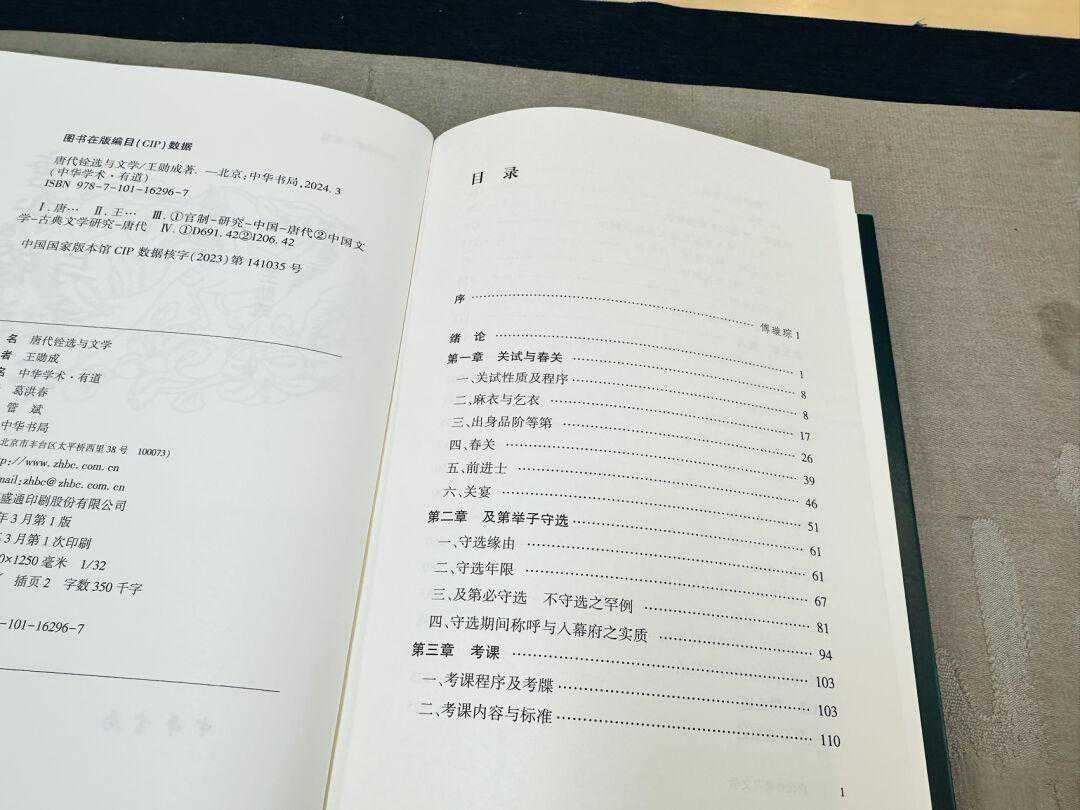 图书在版编目(CIP)数据
唐代铨选与文学/王勋成著.—北京:中华书局,2024.3
(中华学术·有道)
ISBN 978-7-101-16296-7
Ⅰ.唐… Ⅱ.王… Ⅲ.①官制-研究-中国-唐代②中国文
学-古典文学研究-唐代 Ⅳ.①D691.42②I206.42
中国国家版本馆CIP数据核字(2023)第141035号
名 唐代铨选与文学
者 王勋成
名 中华学术·有道
葛洪春
管 斌
中华书局
北京市丰台区太平桥西里38号 100073)
p://www.zhbc.com.cn
mail:zhbc@zhbc.com.cn
盛通印刷股份有限公司
年3月第1版
3月第1次印刷
0×1250毫米 1/32
插页2 字数350千字
-101-16296-7
中华书局
目 录
序……傅璇琮 1
绪 论……1
第一章 关试与春关……8
一、关试性质及程序……8
二、麻衣与乞衣……17
三、出身品阶等第……26
四、春关……39
五、前进士……46
六、关宴……51
第二章 及第举子守选……61
一、守选缘由……61
二、守选年限……67
三、及第必守选 不守选之罕例……81
四、守选期间称呼与入幕府之实质……94
第三章 考课……103
一、考课程序及考牒……103
二、考课内容与标准……110
1